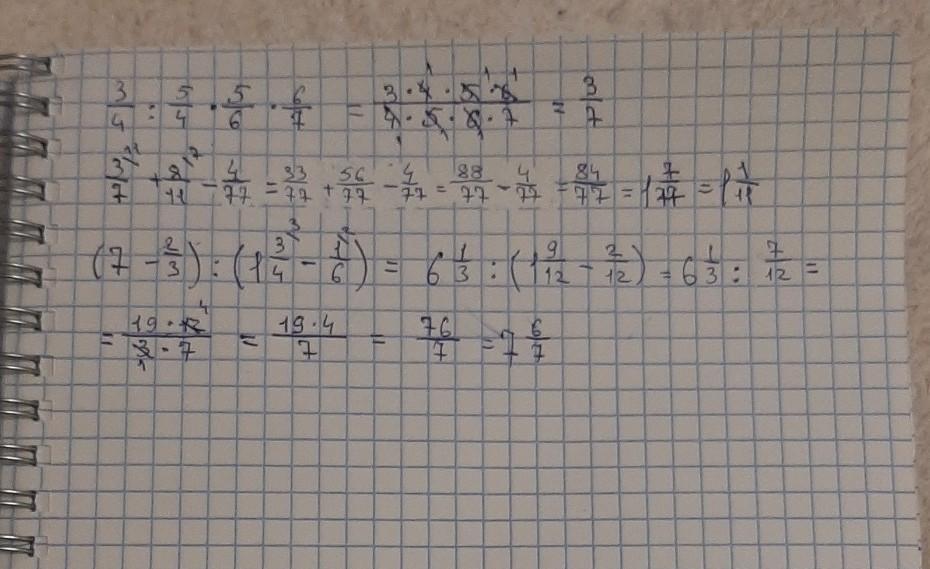 3/4 : 5/4 · 5/6 · 6/7 = (3·4·5·6)/(4·5·6·7) = 3/7
3/7 + 8/11 - 4/77 = 33/77 + 56/77 - 4/77 = 88/77 - 4/77 = 84/77 = 1 7/77 = 1 1/11
(7 - 2/3) : (1 3/4 - 1/6) = 6 1/3 : (1 9/12 - 2/12) = 6 1/3 : 7/12 =
= (19·12)/(3·7) = (19·4)/7 = 76/7 = 7 6/7